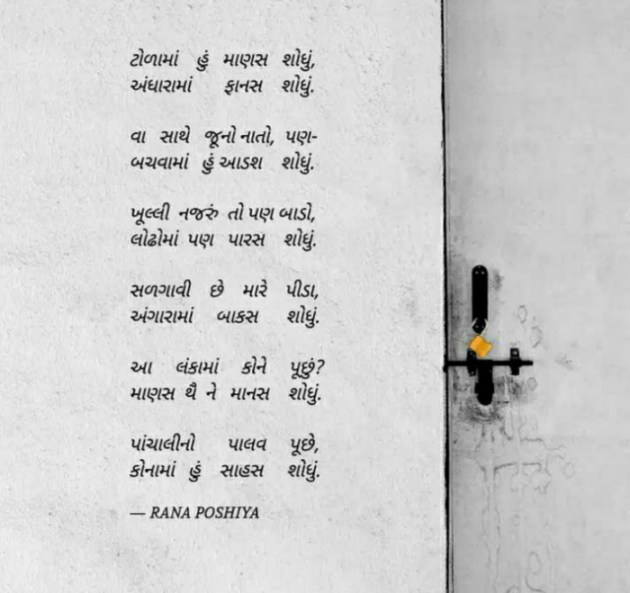 ટોળામાં હું માણસ શોધું,
અંધારામાં ફાનસ શોધું.
વા સાથે જૂનો નાતો, પણ-
બચવામાં હું આડશ શોધું.
ખૂલ્લી નજરું તો પણ બાડો,
લોઢોમાં પણ પારસ શોધું.
સળગાવી છે મારે પીડા,
અંગારામાં બાકસ શોધું.
આ લંકામાં કોને પૂછું?
માણસ થૈ ને માનસ શોધું.
પાંચાલીનો પાલવ પૂછે,
કોનામાં હું સાહસ શોધું.
— RANA POSHIYA